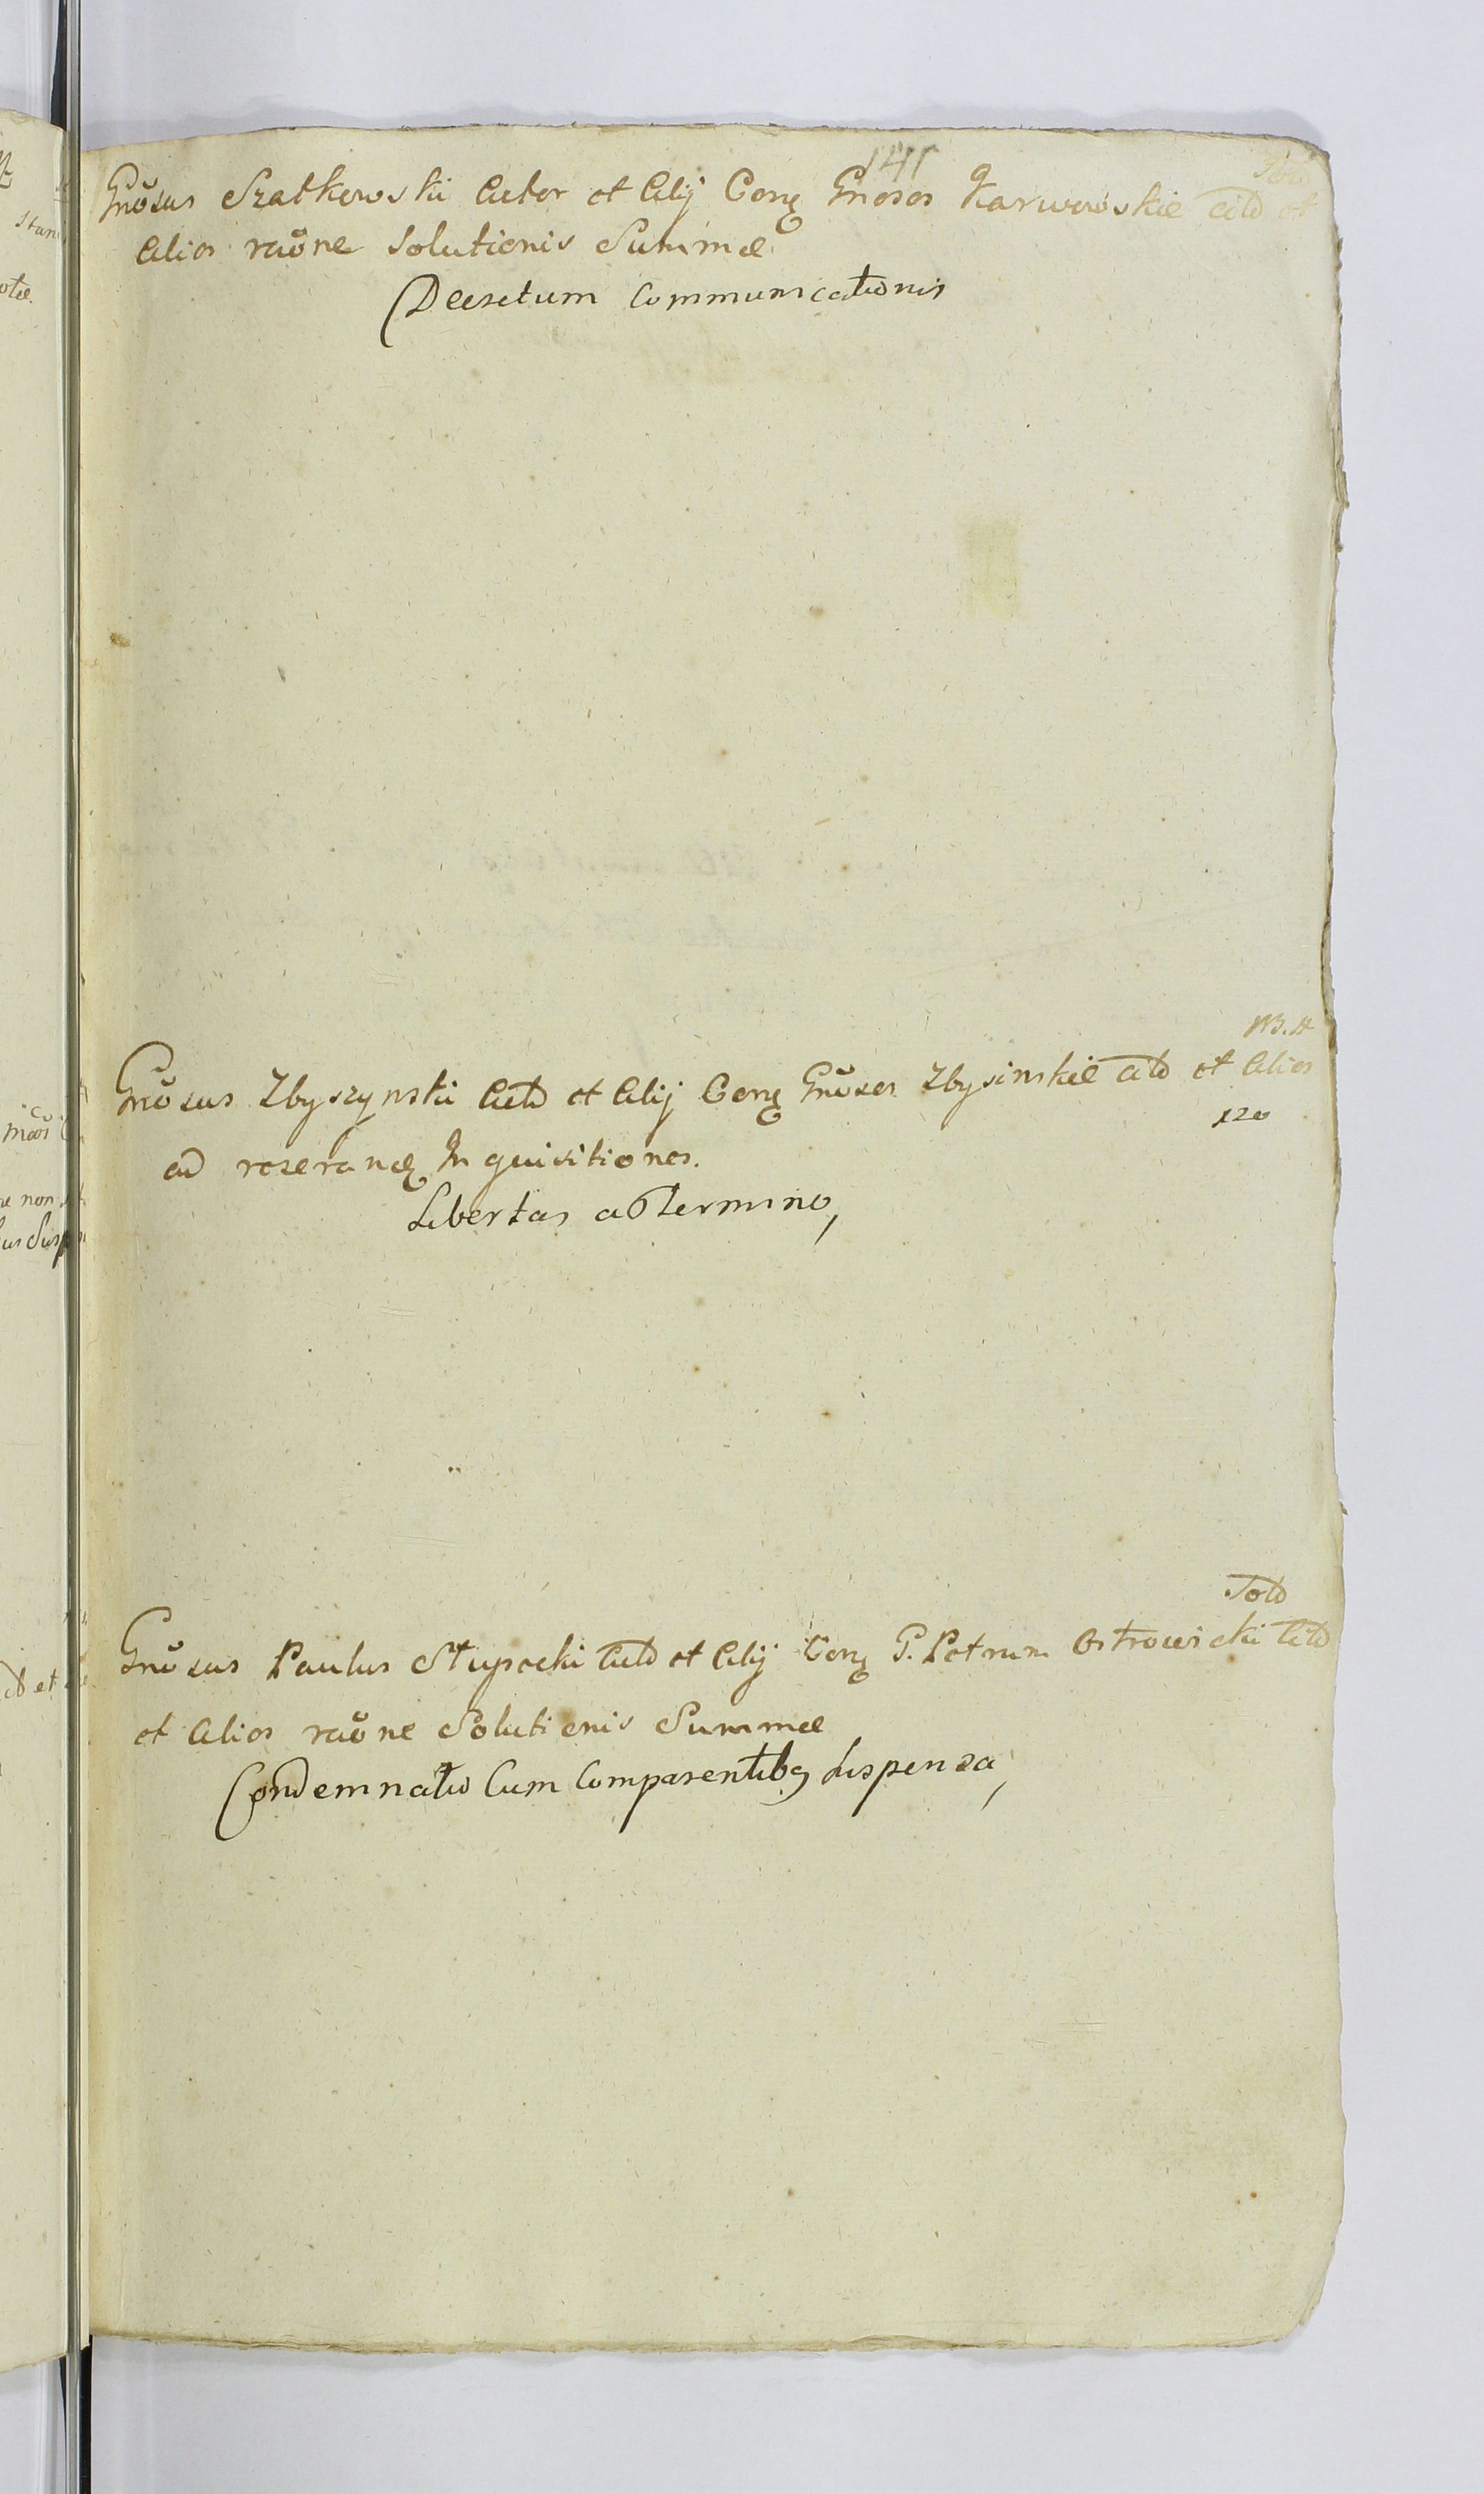 141
Gnosus Szatkowski Actor et Alij Conq Gnosos Karwowskie citd et
Alios raone Solutionis Summæ
Decretum Communicationis
Gnosus Zbyszynski Actd et Alij Conq Gnosos Zbysinskie citd et Alios
120
ad reserandq Inquisitiones.
Libertas a Termino,
Told
Gnosus Paulus Stupecki Actd et Alij Conq G. Petrum Ostrowicki Citd
et Alios raone Solutionis Summæ
Condemnatio Cum Comparentibq dispensa,